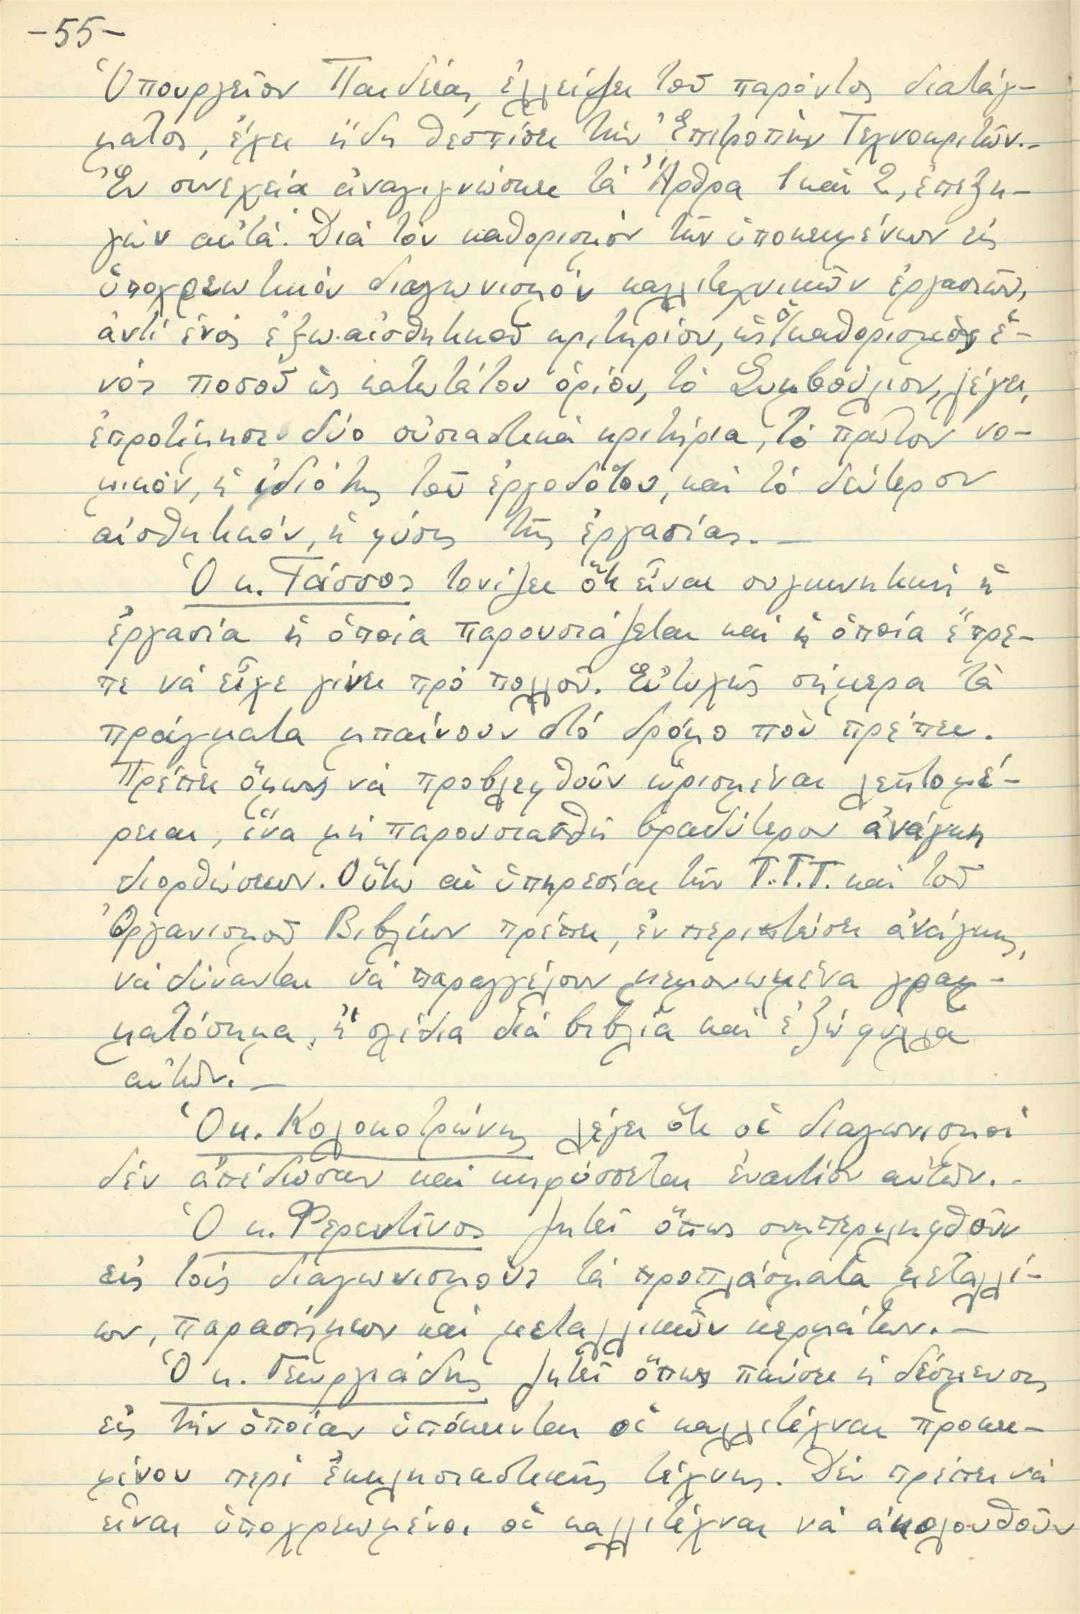 -55-
Ὑπουργεῖον Παιδείας, ἐλλείψει τοῦ παρόντος διατάγ-
ματος, ἔχει ἤδη θεσπίσει τὴν Ἐπιτροπὴν Τεχνοκριτῶν.-
Ἐν συνεχείᾳ ἀναγιγνώσκει τὰ Ἄρθρα 1 καὶ 2, ἐπεξη-
γῶν αὐτά. Διὰ τὸν καθορισμὸν τῶν ὑποκειμένων εἰς
ὑποχρεωτικὸν διαγωνισμὸν καλλιτεχνικῶν ἐργασιῶν,
ἀντὶ ἑνὸς ἐξωαισθητικοῦ κριτηρίου, ὡς ὁ καθορισμὸς ἑ-
νὸς ποσοῦ ὡς κατωτάτου ὁρίου, τὸ Συμβούλιον, λέγει,
ἐπροτίμησε δύο οὐσιαστικὰ κριτήρια, τὸ πρῶτον νο-
μικόν, ἡ ἰδιότης τοῦ ἐργοδότου, καὶ τὸ δεύτερον
αἰσθητικόν, ἡ φύσις τῆς ἐργασίας.-
Ὁ κ. Τάσσος τονίζει ὅτι εἶναι συγκινητικὴ ἡ
ἐργασία ἡ ὁποία παρουσιάζεται καὶ ἡ ὁποία ἔπρε-
πε νὰ εἶχε γίνει πρὸ πολλοῦ. Εὐτυχῶς σήμερα τὰ
πράγματα μπαίνουν στὸ δρόμο ποὺ πρέπει.
Πρέπει ὅμως νὰ προβλεφθοῦν ὡρισμέναι λεπτομέ-
ρειαι, ἵνα μὴ παρουσιασθῇ βραδύτερον ἀνάγκη
διορθώσεων. Οὕτω αἱ ὑπηρεσίαι τῶν Τ.Τ.Τ. καὶ τοῦ
Ὀργανισμοῦ Βιβλίων πρέπει, ἐν περιπτώσει ἀνάγκης,
νὰ δύνανται νὰ παραγγέλουν μεμονωμένα γραμ-
ματόσημα, ἢ σχέδια διὰ βιβλία καὶ ἐξώφυλλα
αὐτῶν.-
Ὁ κ. Κολοκοτρώνης λέγει ὅτι οἱ διαγωνισμοὶ
δὲν ἀπέδωσαν καὶ κηρύσσεται ἐναντίον αὐτῶν.-
Ὁ κ. Φερεντῖνος ζητεῖ ὅπως συμπεριληφθοῦν
εἰς τοὺς διαγωνισμοὺς τὰ προπλάσματα μεταλλί-
ων, παρασήμων καὶ μεταλλικῶν κερμάτων.-
Ὁ κ. Γεωργιάδης ζητεῖ ὅπως παύσει ἡ δέσμευσις
εἰς τὴν ὁποίαν ὑπόκεινται οἱ καλλιτέχναι προκει-
μένου περὶ ἐκκλησιαστικῆς τέχνης. Δὲν πρέπει νὰ
εἶναι ὑποχρεωμένοι οἱ καλλιτέχναι νὰ ἀκολουθοῦν